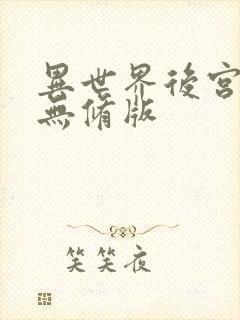 異世界後宮
無脩版
笑笑夜